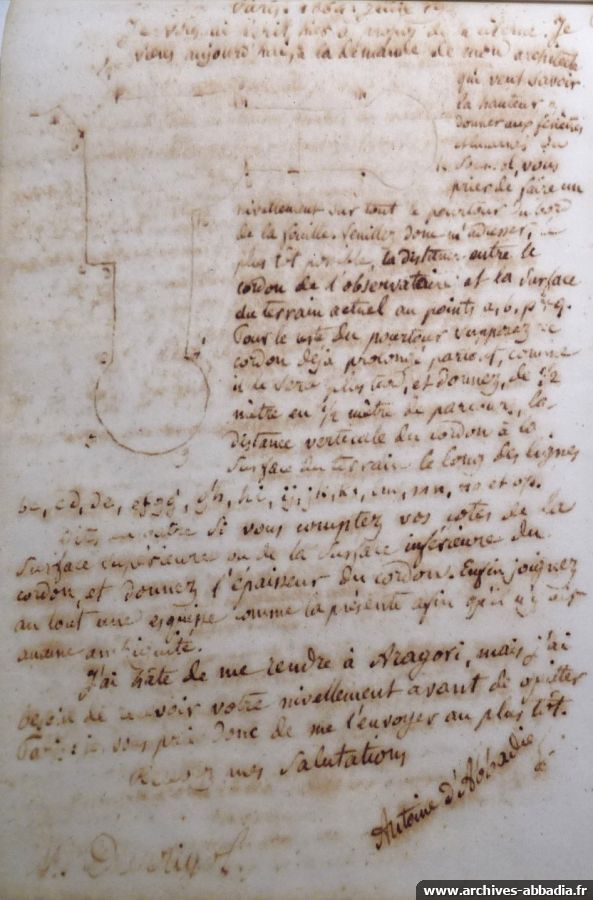 Paris 1864 juin
Je vous ai écrit hier à propos de citerne. Je
viens aujourd'hui, à la demande de mon architecte
qui veut savoir
la hauteur à
donner aux fenêtres
du
vous
prier de faire un
nivellement sur tout le pourtour du bord
de la fouille. Veuillez donc m'adresser, le
plus tôt possible, la distance entre le
cordon de l'observatoire et la surface
du terrain actuel au points a, b, p et q.
Pour le reste du pourtour supposez le
cordon déjà prolongé par o, q, comme
il le sera plus tard, et donnez, de 1/2
mètre en 1/2 mètre de parcours, la
distance verticale du cordon à la
surface du terrain le long des lignes
bc, cd, de, ef, fg, gh, hi, ij, jk, kl, lm, mn, no et op.
Dites en outre si vous comptez vos cotes de la
surface supérieure ou de la surface inférieure du
cordon, et donnez l'épaisseur du cordon. Enfin joignez
au tout une esquisse comme la présente afin qu'il n'y ait
aucune ambiguité.
J'ai hâte de me rendre à Aragori, mais j'ai
besoin de recevoir votre nivellement avant de quitter
Paris: je vous prie donc de me l'envoyer au plus tôt.
Recevez mes salutations
Antoine d'Abbadie
www.archives-abbadia.fr